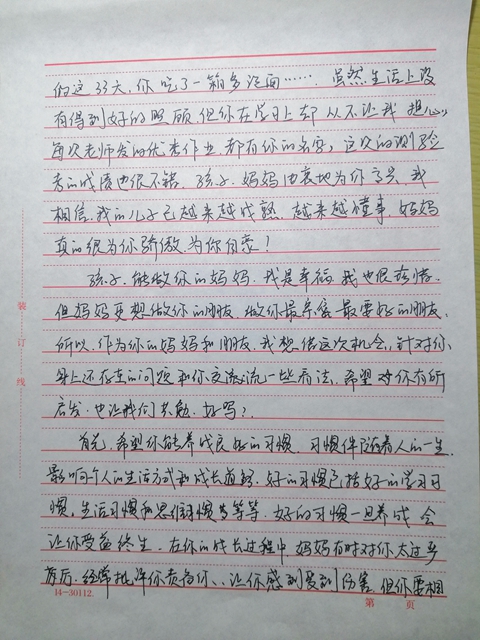 们这33天,你吃了一箱多泡面……虽然生活上没
有得到好的照顾,但你在学习上却从不让我担心,
每次老师发的优秀作业,都有你的名字,这次的测验
考的成绩也很不错,孩子,妈妈由衷地为你高兴,我
相信,我的儿子已越来越成熟,越来越懂事,妈妈
真的很为你骄傲,为你自豪!
孩子,能做你的妈妈,我是幸福,我也很珍惜,
但妈妈更想做你的朋友,做你最亲密,最要好的朋友,
所以,作为你的妈妈和朋友,我想借这次机会,针对你
身上还存在的问题和你交流交流一些看法,希望对你有所
启发,也让我们共勉,好吗?
首先,希望你能养成良好的习惯,习惯伴随着人的一生,
影响个人的生活方式和成长道路,好的习惯包括好的学习习
惯,生活习惯和思维习惯等等,好的习惯一旦养成会
让你受益终生,在你的成长过程中妈妈有时对你太过
经常批评你责备你,让你感到受到伤害,但你要相
装
订
线
14-30112
第 页